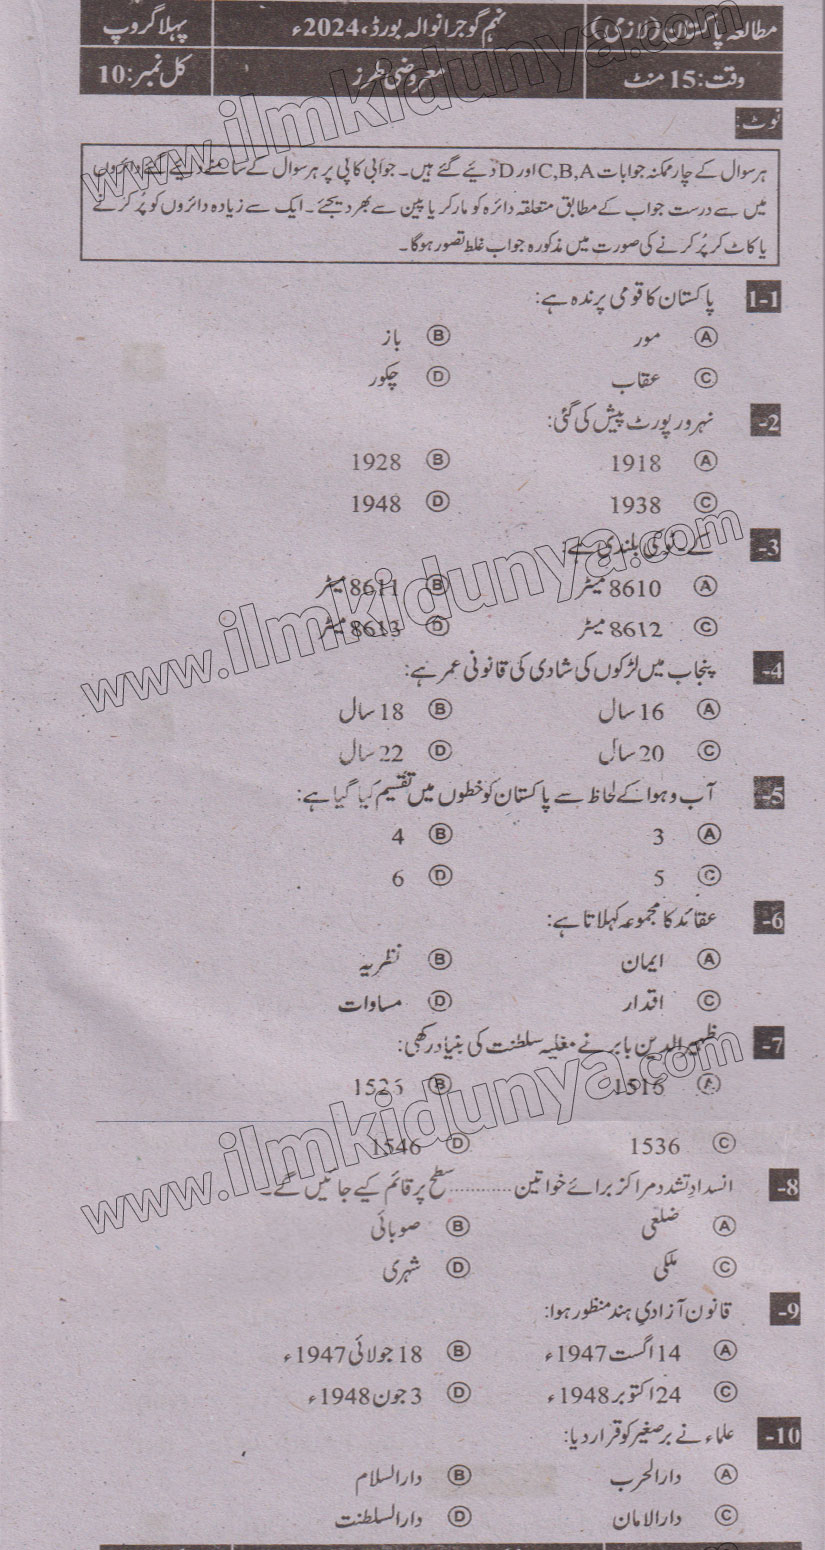 مطالعہ پاکستان (لازمی) نہم گوجرانوالہ بورڈ، 2024ء پہلا گروپ
وقت: 15 منٹ معروضی طرز کل نمبر: 10
نوٹ:
ہر سوال کے چار ممکنہ جوابات C,B,A اور D دیئے گئے ہیں۔ جوابی کاپی پر ہر سوال کے سامنے دیئے گئے دائروں
میں سے درست جواب کے مطابق متعلقہ دائرہ کو مارکر یا پین سے بھر دیجئے۔ ایک سے زیادہ دائروں کو پُر کرنے
یا کاٹ کر پُر کرنے کی صورت میں مذکورہ جواب غلط تصور ہوگا۔
1-1 پاکستان کا قومی پرندہ ہے:
A مور B باز
C عقاب D چکور
2- نہرو رپورٹ پیش کی گئی:
A 1918 B 1928
C 1938 D 1948
3- کے۔ٹو کی بلندی ہے:
A 8610 میٹر B 8611 میٹر
C 8612 میٹر D 8613 میٹر
4- پنجاب میں لڑکوں کی شادی کی قانونی عمر ہے:
A 16 سال B 18 سال
C 20 سال D 22 سال
5- آب و ہوا کے لحاظ سے پاکستان کو خطوں میں تقسیم کیا گیا ہے:
A 3 B 4
C 5 D 6
6- عقائد کا مجموعہ کہلاتا ہے:
A ایمان B نظریہ
C اقدار D مساوات
7- ظہیر الدین بابر نے مغلیہ سلطنت کی بنیاد رکھی:
A 1516 B 1526
C 1536 D 1546
8- انسدادِ تشدد مراکز برائے خواتین ............ سطح پر قائم کیے جائیں گے۔
A ضلعی B صوبائی
C ملکی D شہری
9- قانون آزادیِ ہند منظور ہوا:
A 14 اگست 1947ء B 18 جولائی 1947ء
C 24 اکتوبر 1948ء D 3 جون 1948ء
10- علماء نے برصغیر کو قرار دیا:
A دارالحرب B دارالسلام
C دارالامان D دارالسلطنت
www.ilmkidunya.com
www.ilmkidunya.com
www.ilmkidunya.com